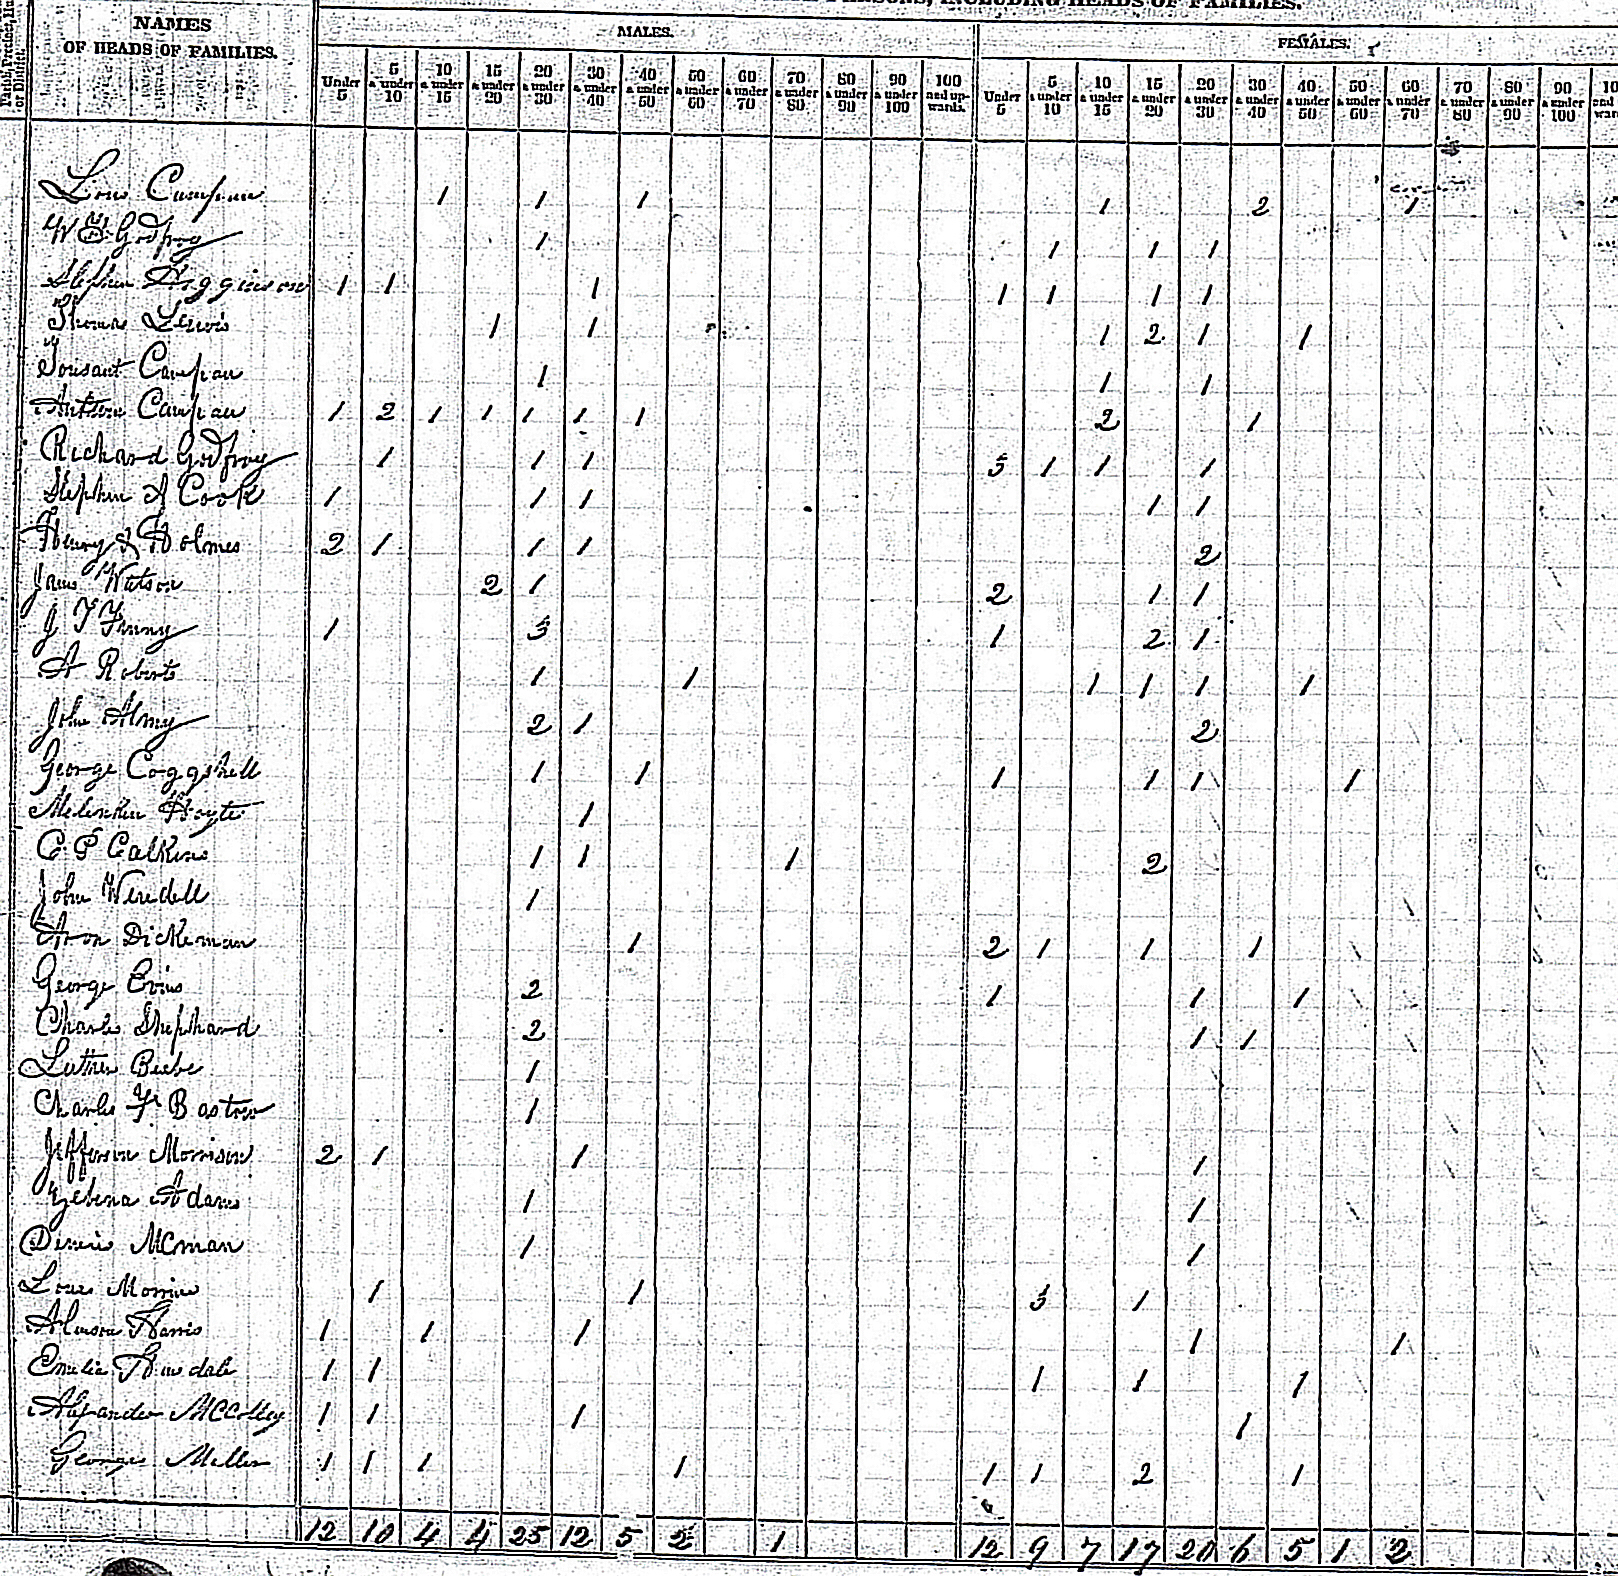 PERSONS, INCLUDING HEADS OF FAMILIES.
NAMES OF HEADS OF FAMILIES.
MALES. FEMALES.
Under 5 | 5 & under 10 | 10 & under 15 | 15 & under 20 | 20 & under 30 | 30 & under 40 | 40 & under 50 | 50 & under 60 | 60 & under 70 | 70 & under 80 | 80 & under 90 | 90 & under 100 | 100 and upwards. | Under 5 | 5 & under 10 | 10 & under 15 | 15 & under 20 | 20 & under 30 | 30 & under 40 | 40 & under 50 | 50 & under 60 | 60 & under 70 | 70 & under 80 | 80 & under 90 | 90 & under 100
Campau 1 1 1 1 2 1
W Godfroy 1 1 1 1
Stephen 1 1 1 1 1 1 1
Thomas Lewis 1 1 1 2 1 1
Tousant Campau 1 1 1
Campau 1 2 1 1 1 1 1 2 1
Richard Godfroy 1 1 1 3 1 1 1
Stephen A Cook 1 1 1 1 1
Henry Holmes 2 1 1 1 2
James Watson 2 1 2 1 1
J T Finny 1 3 1 2 1
A Roberts 1 1 1 1 1 1
John Almy 2 1 2
George Coggshell 1 1 1 1 1 1
Hoyte 1
C P Calkins 1 1 1 2
John Wendell 1
Aron Dickeman 1 2 1 1 1
George Evins 2 1 1 1
Charles Shephard 2 1 1
Luther Beebe 1
Charles F Bostow 1
Jefferson Morrison 2 1 1 1
Adams 1 1
Dennis McMan 1 1
Morrin 1 1 3 1
Harris 1 1 1 1 1
1 1 1 1 1
Alexander 1 1 1 1
George Miller 1 1 1 1 1 1 2 1
12 10 4 4 25 12 5 2 1 12 9 7 17 20 6 5 1 2